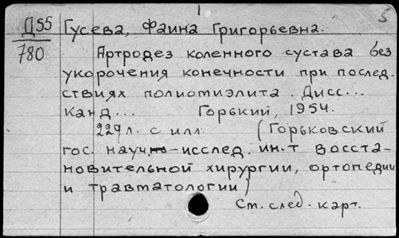 5
Д55 Гусева, Фаина Григорьевна.
780
Артродез коленного сустава без
укорочения конечности при послед-
ствиях полиомиэлита. Дисс...
Канд... Горький, 1954.
229л. с илл. (Горьковский
гос. научн-исслед. ин-т восста-
новительной хирургии, ортопедии
и травматологии)
См. след. карт.